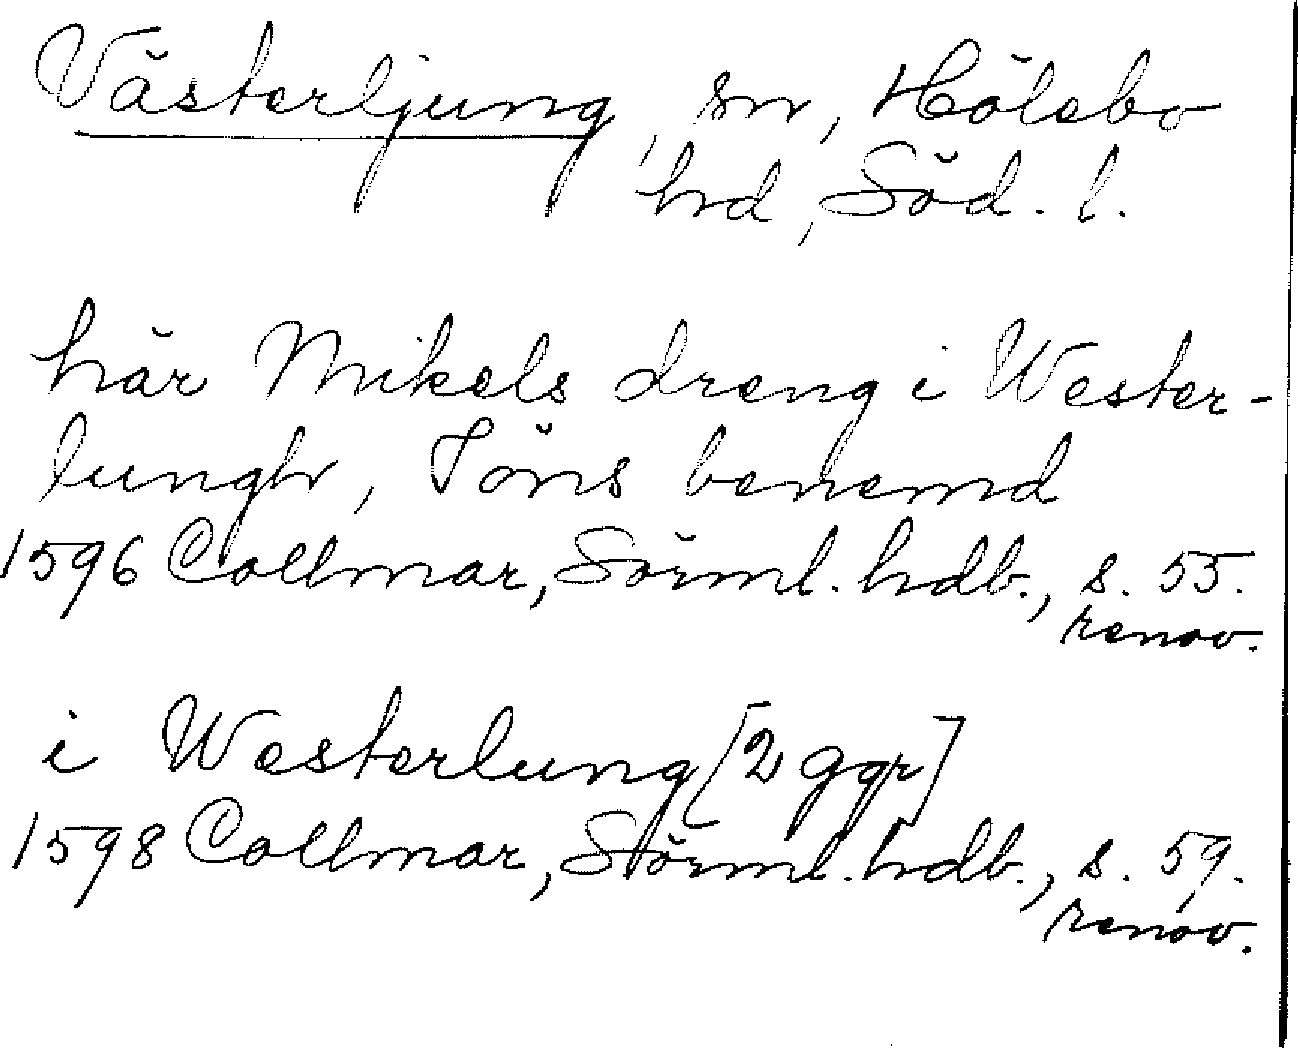 Västerljung, sn, Hölebo
hd, Söd. l.
här Mikels dreng i Wester-
lungh, Jöns benemd
1596 Collmar, Sörml. hdb., s. 55.
renov.
i Westerlung [2 ggr]
1598 Collmar, Sörml. hdb., s. 59.
renov.